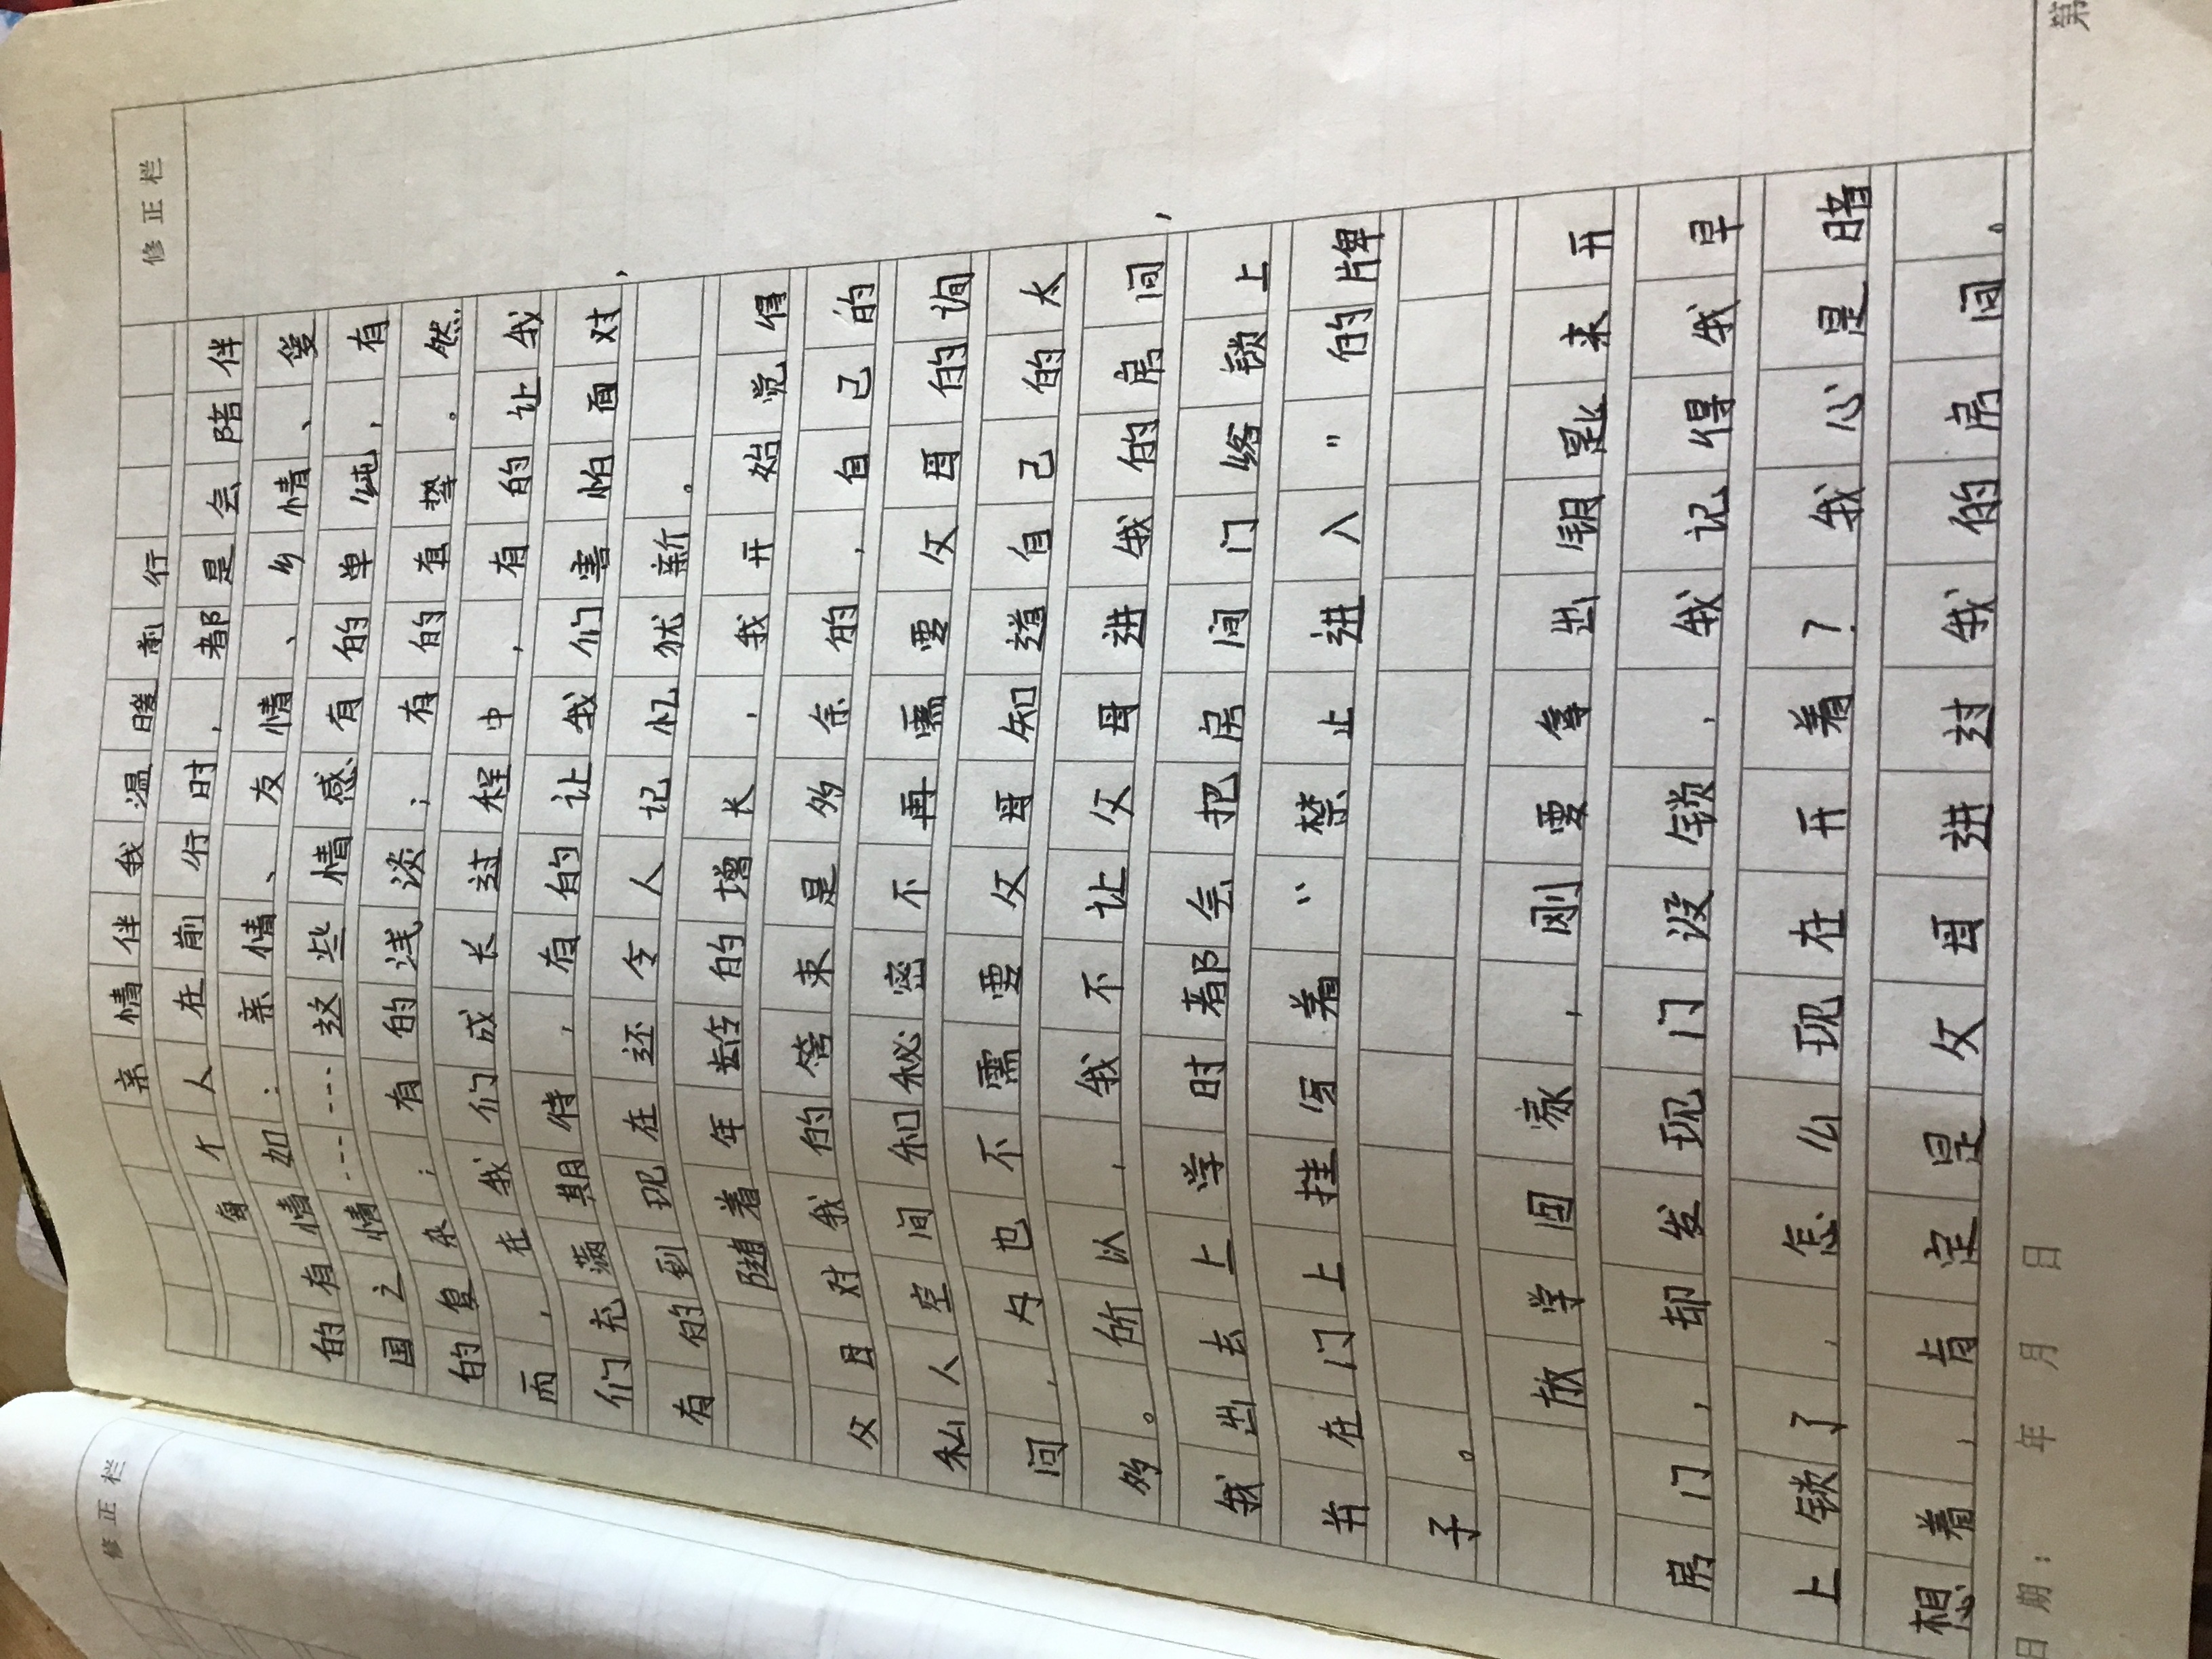 修正栏
修正栏
亲情伴我温暖前行
每个人在前行时，都是会陪伴
的有情如：亲情、友情、乡情、爱
国之情……这些情感有的单纯，有
的复杂；有的浅淡；有的真挚。然
而，在我们成长过程中，有的让我
们充满期待，有的让我们害怕面对，
有的到现在还令人记忆犹新。
随着年龄的增长，我开始觉得
父母对我的管束是多余的，自己的
私人空间和秘密不再需要父母的询
问，也不需要父母知道自己的太
多。所以，我不让父母进我的房间，
我出去上学时都会把房间门给锁上
并在门上挂写着“禁止进入”的牌
子。
放学回家，刚要拿出钥匙来开
房门，却发现门没锁，我记得我早
上锁了，怎么现在开着？我心是暗
想着，肯定是父母进过我的房间。
日期： 年 月 日 第